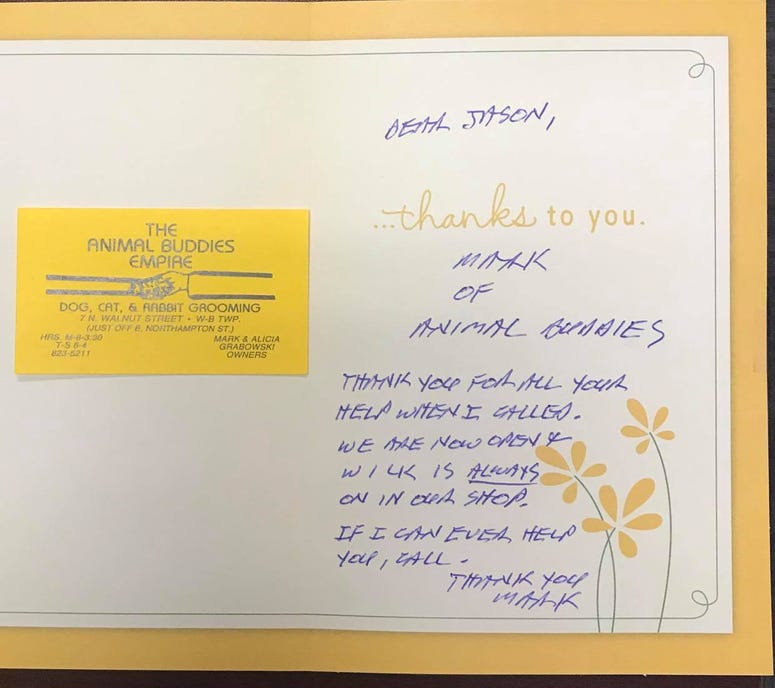 THE
ANIMAL BUDDIES
EMPIRE
DOG, CAT, & RABBIT GROOMING
7 N. WALNUT STREET • W-B TWP.
(JUST OFF E. NORTHAMPTON ST.)
HRS. M-8-3:30
T-S 8-4
823-5211
MARK & ALICIA
GRABOWSKI
OWNERS
DEAR JASON,
...thanks to you.
MARK
OF
ANIMAL BUDDIES
THANK YOU FOR ALL YOUR
HELP WHEN I CALLED.
WE ARE NOW OPEN &
WILK IS ALWAYS
ON IN OUR SHOP.
IF I CAN EVER HELP
YOU, CALL.
THANK YOU
MARK